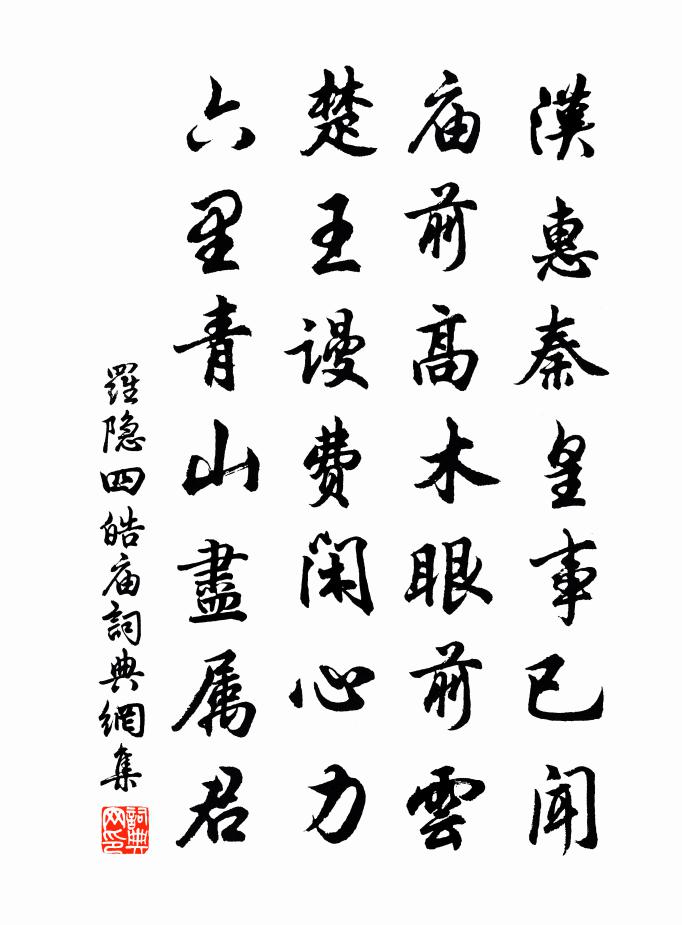 漢惠秦皇事已聞
庙前高木眼前雲
楚王謾費閑心力
六里青山盡属君
羅隐四皓庙詞典網集
詞典网印